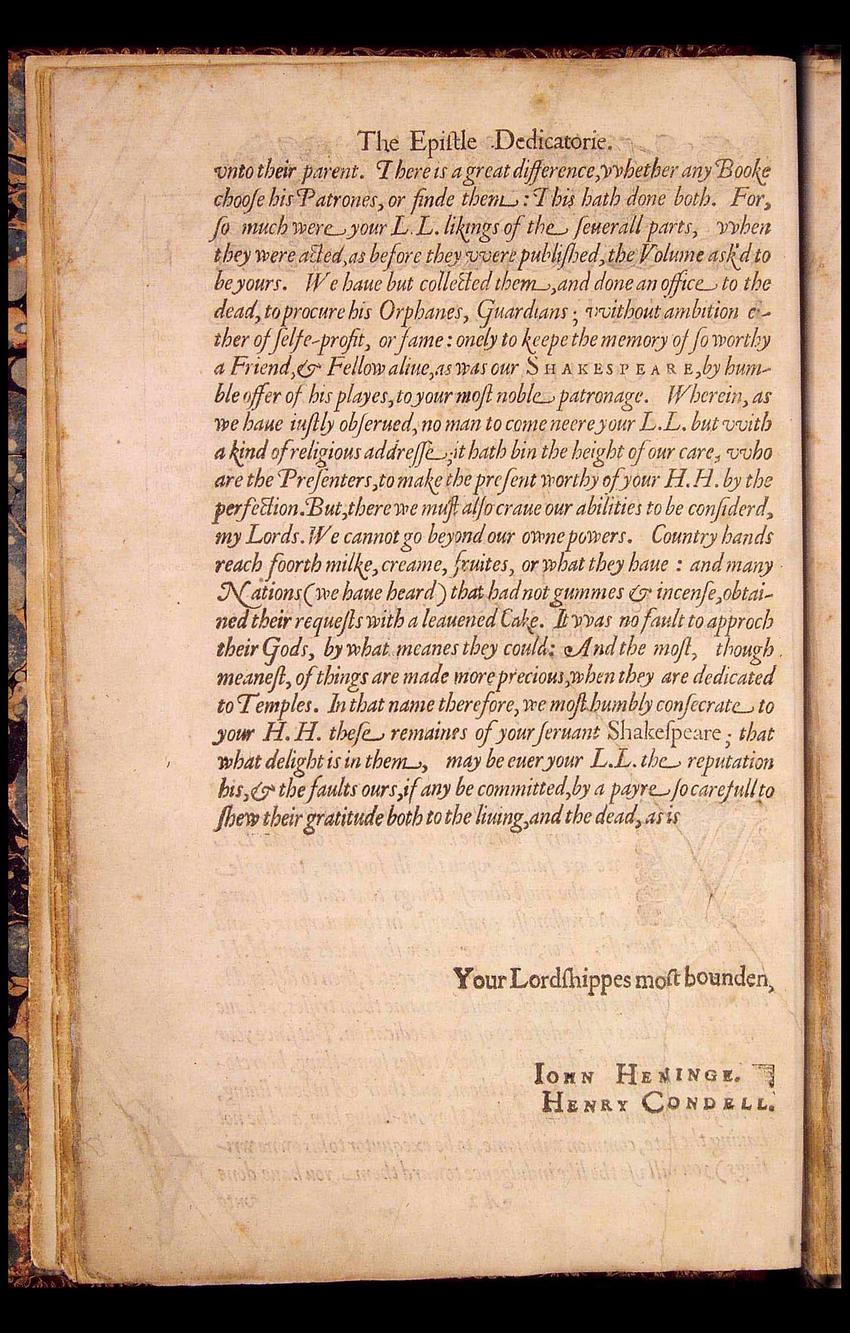 The Epiſtle Dedicatorie.
vnto their parent. There is a great difference, vvhether any Booke
chooſe his Patrones, or finde them: This hath done both. For,
ſo much were your L.L. likings of the ſeuerall parts, vvhen
they were acted, as before they vvere publiſhed, the Volume ask'd to
be yours. We haue but collected them, and done an office to the
dead, to procure his Orphanes, Guardians; vvithout ambition ei-
ther of ſelfe-profit, or fame: onely to keepe the memory of ſo worthy
a Friend, & Fellow aliue, as was our SHAKESPEARE, by hum-
ble offer of his playes, to your moſt noble patronage. Wherein, as
we haue iuſtly obſerued, no man to come neere your L.L. but vvith
a kind of religious addreſſe; it hath bin the height of our care, vvho
are the Preſenters, to make the preſent worthy of your H.H. by the
perfection. But, there we muſt alſo craue our abilities to be conſiderd,
my Lords. We cannot go beyond our owne powers. Country hands
reach foorth milke, creame, fruites, or what they haue : and many
Nations (we haue heard) that had not gummes & incenſe, obtai-
ned their requeſts with a leauened Cake. It vvas no fault to approch
their Gods, by what meanes they could: And the moſt, though
meaneſt, of things are made more precious, when they are dedicated
to Temples. In that name therefore, we moſt humbly conſecrate to
your H.H. theſe remaines of your ſeruant Shakeſpeare; that
what delight is in them, may be euer your L.L. the reputation
his, & the faults ours, if any be committed, by a payre ſo carefull to
ſhew their gratitude both to the liuing, and the dead, as is
Your Lordſhippes moſt bounden,
IOHN HEMINGE.
HENRY CONDELL.